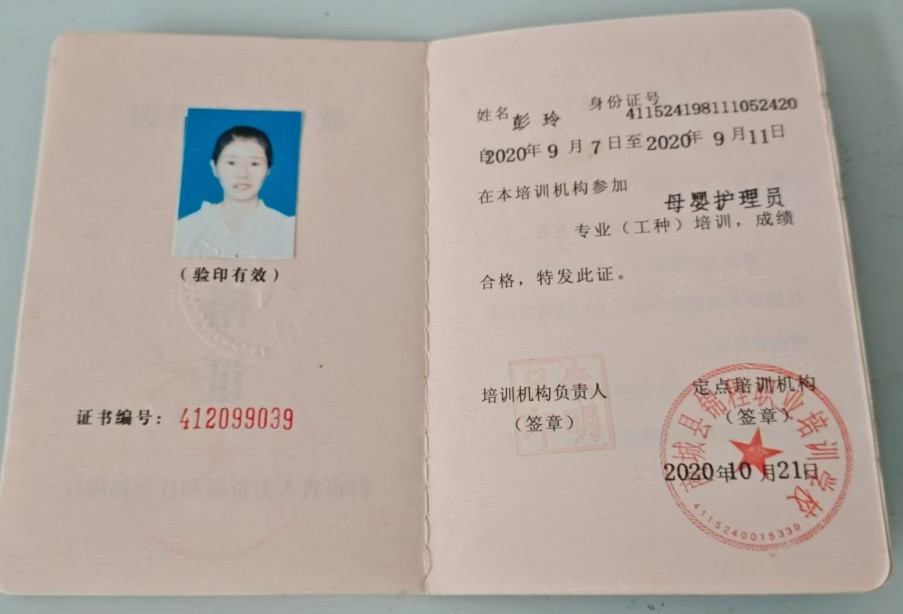 （验印有效）
证书编号：412099039
姓名 彭玲 身份证号 411524198111052420
自2020年9月7日至2020年9月11日
在本培训机构参加 母婴护理员
专业（工种）培训，成绩
合格，特发此证。
培训机构负责人
（签章）
定点培训机构
（签章）
2020年10月21日
商城县锦程职业培训学校
4115240015330